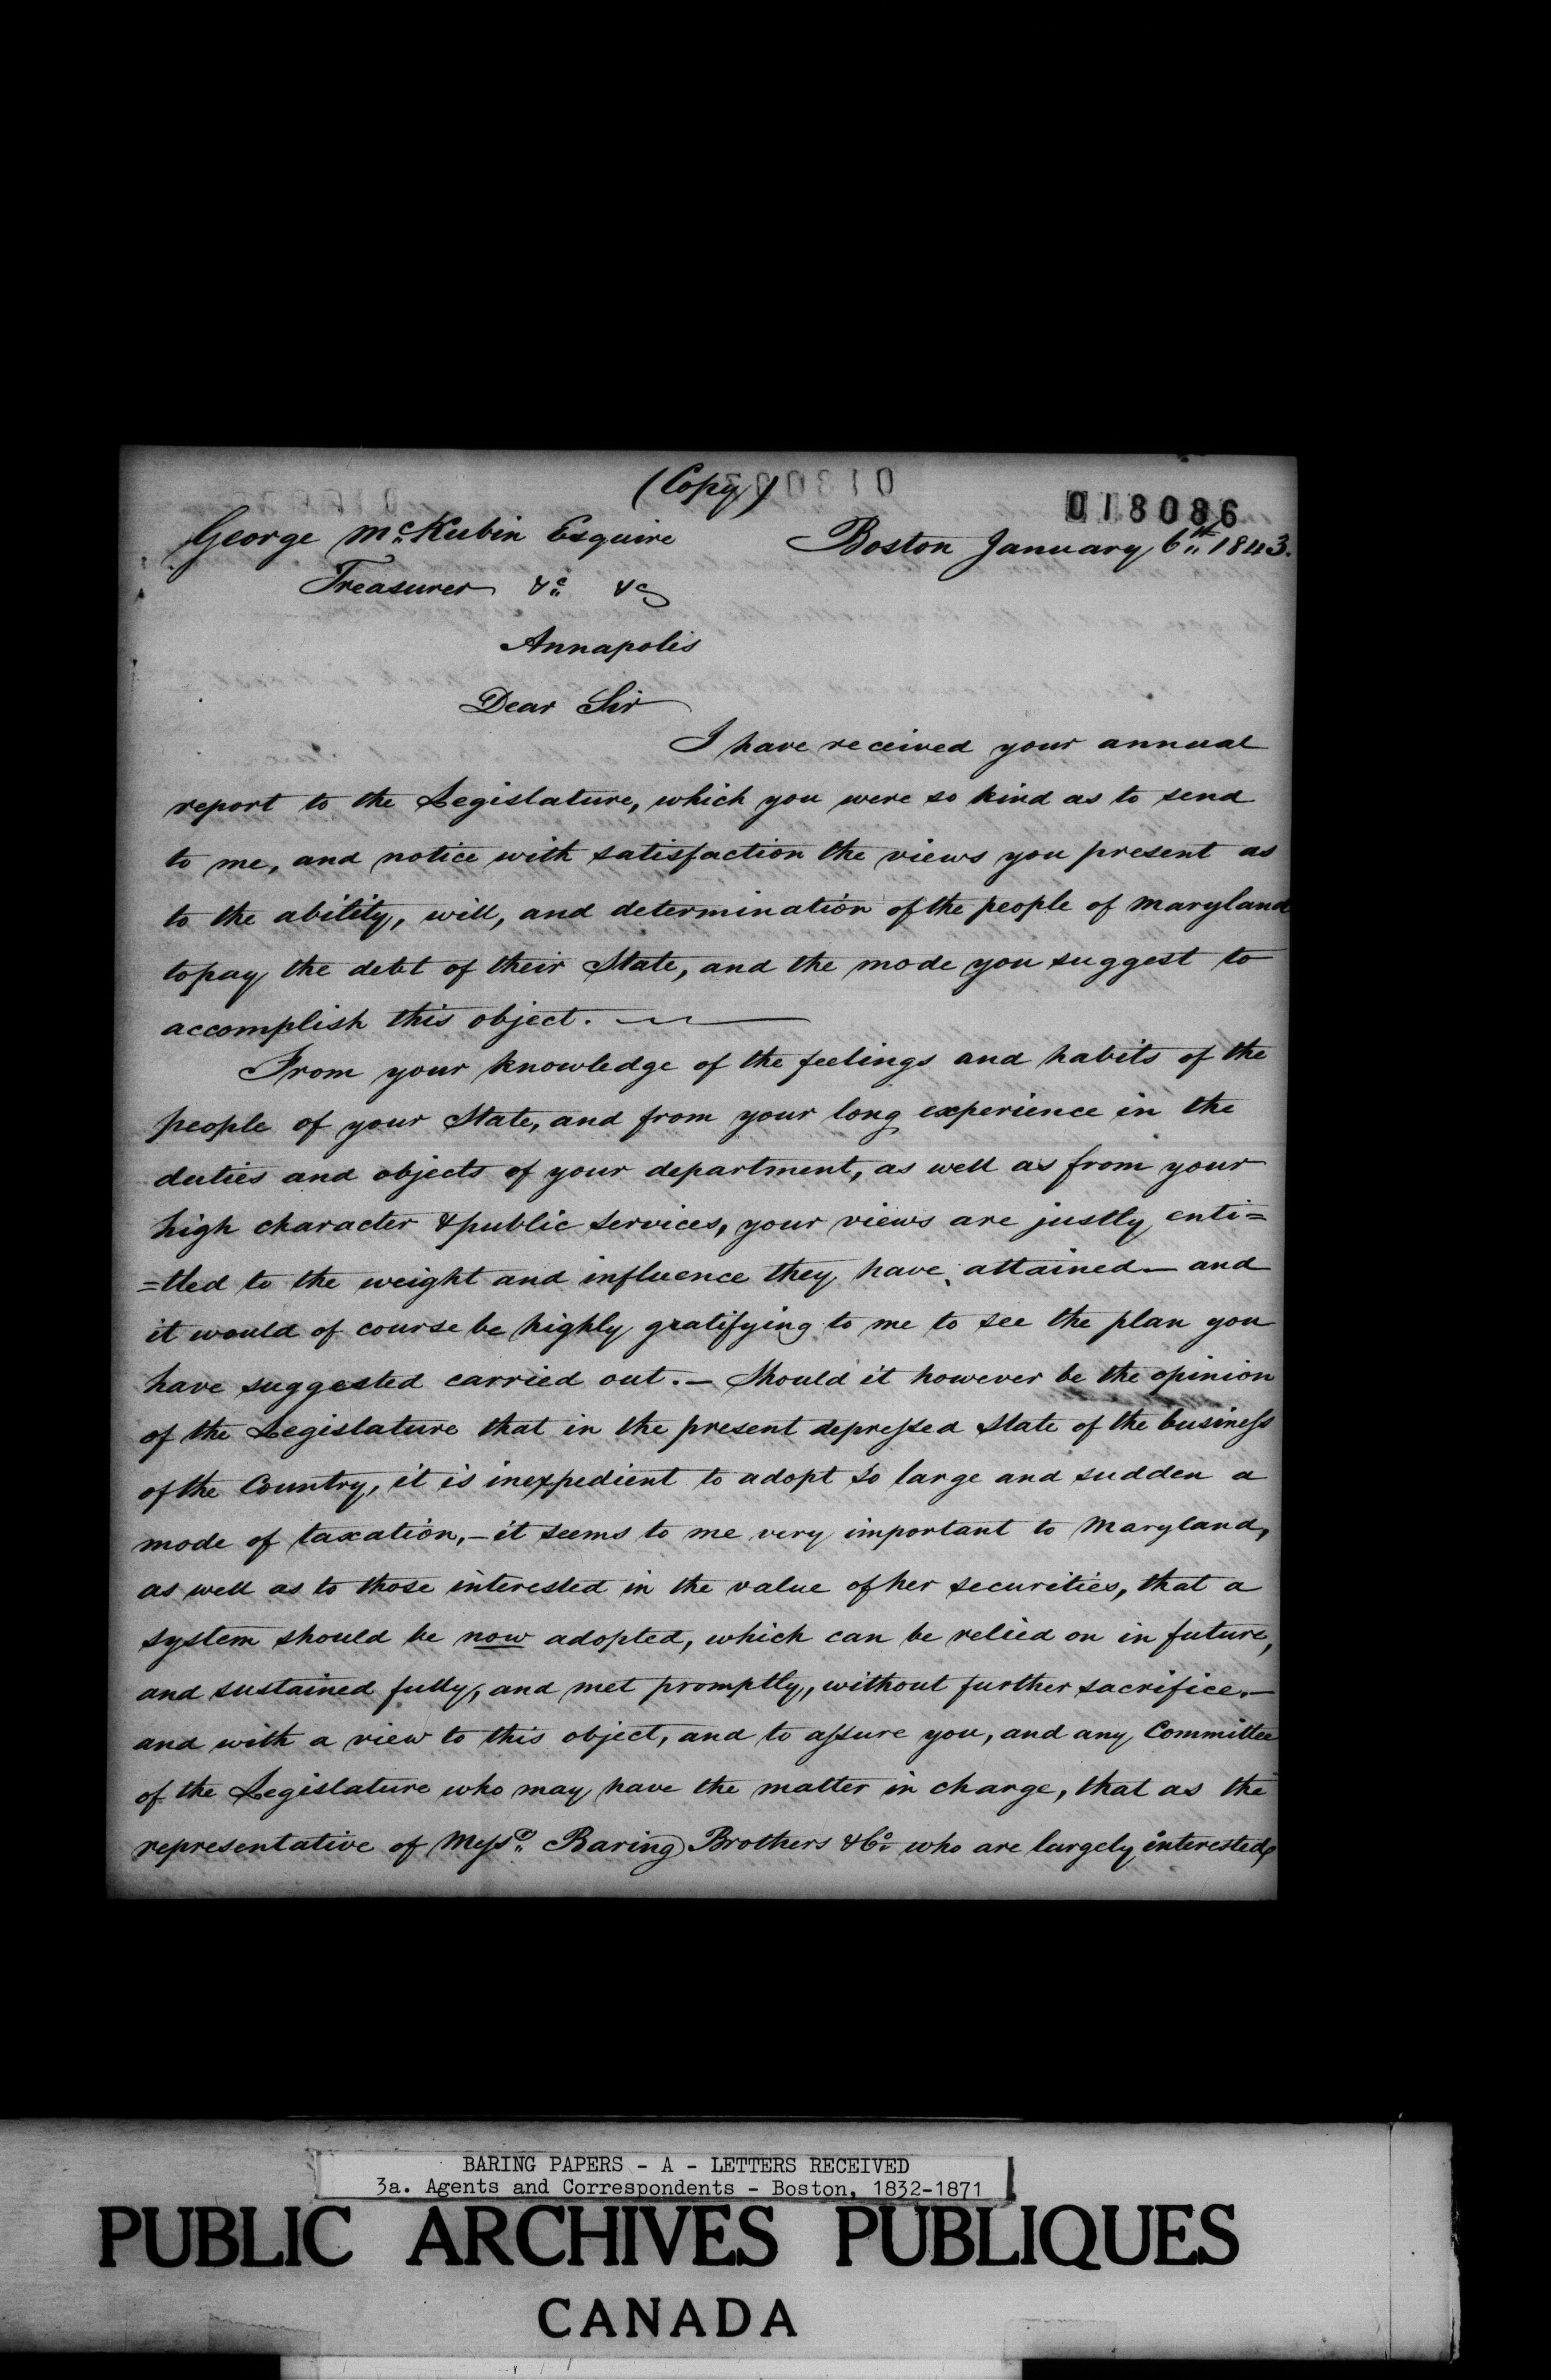 (Copy)
018086
George McKubin Esquire
Boston January 6th 1843.
Treasurer &c &c
Annapolis
Dear Sir
I have received your annual
report to the Legislature, which you were so kind as to send
to me, and notice with satisfaction the views you present as
to the ability, will, and determination of the people of Maryland
to pay the debt of their State, and the mode you suggest to
accomplish this object. —
From your knowledge of the feelings and habits of the
people of your State, and from your long experience in the
duties and objects of your department, as well as from your
high character & public services, your views are justly enti=
=tled to the weight and influence they have attained — and
it would of course be highly gratifying to me to see the plan you
have suggested carried out. — Should it however be the opinion
of the Legislature that in the present depressed State of the business
of the Country, it is inexpedient to adopt so large and sudden a
mode of taxation, — it seems to me very important to Maryland,
as well as to those interested in the value of her securities, that a
system should be now adopted, which can be relied on in future,
and sustained fully, and met promptly, without further sacrifice. —
and with a view to this object, and to assure you, and any Committee
of the Legislature who may have the matter in charge, that as the
representative of Messrs Baring Brothers & Co who are largely interested
BARING PAPERS - A - LETTERS RECEIVED
3a. Agents and Correspondents - Boston, 1832-1871
PUBLIC ARCHIVES PUBLIQUES
CANADA